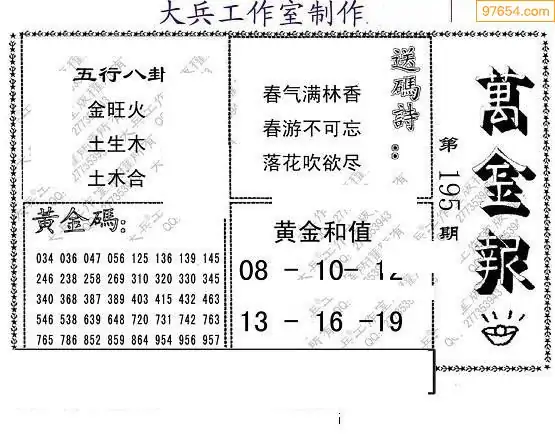 大兵工作室制作
97654.com
五行八卦
金旺火
土生木
土木合
送碼詩:
春气满林香
春游不可忘
落花吹欲尽
萬金報
第195期
黃金碼:
034 036 047 056 125 136 139 145
246 238 258 269 310 320 330 345
340 368 387 389 403 415 432 463
546 538 639 648 720 731 742 763
765 786 852 859 864 954 956 957
黄金和值
08 - 10- 12
13 - 16 -19
i